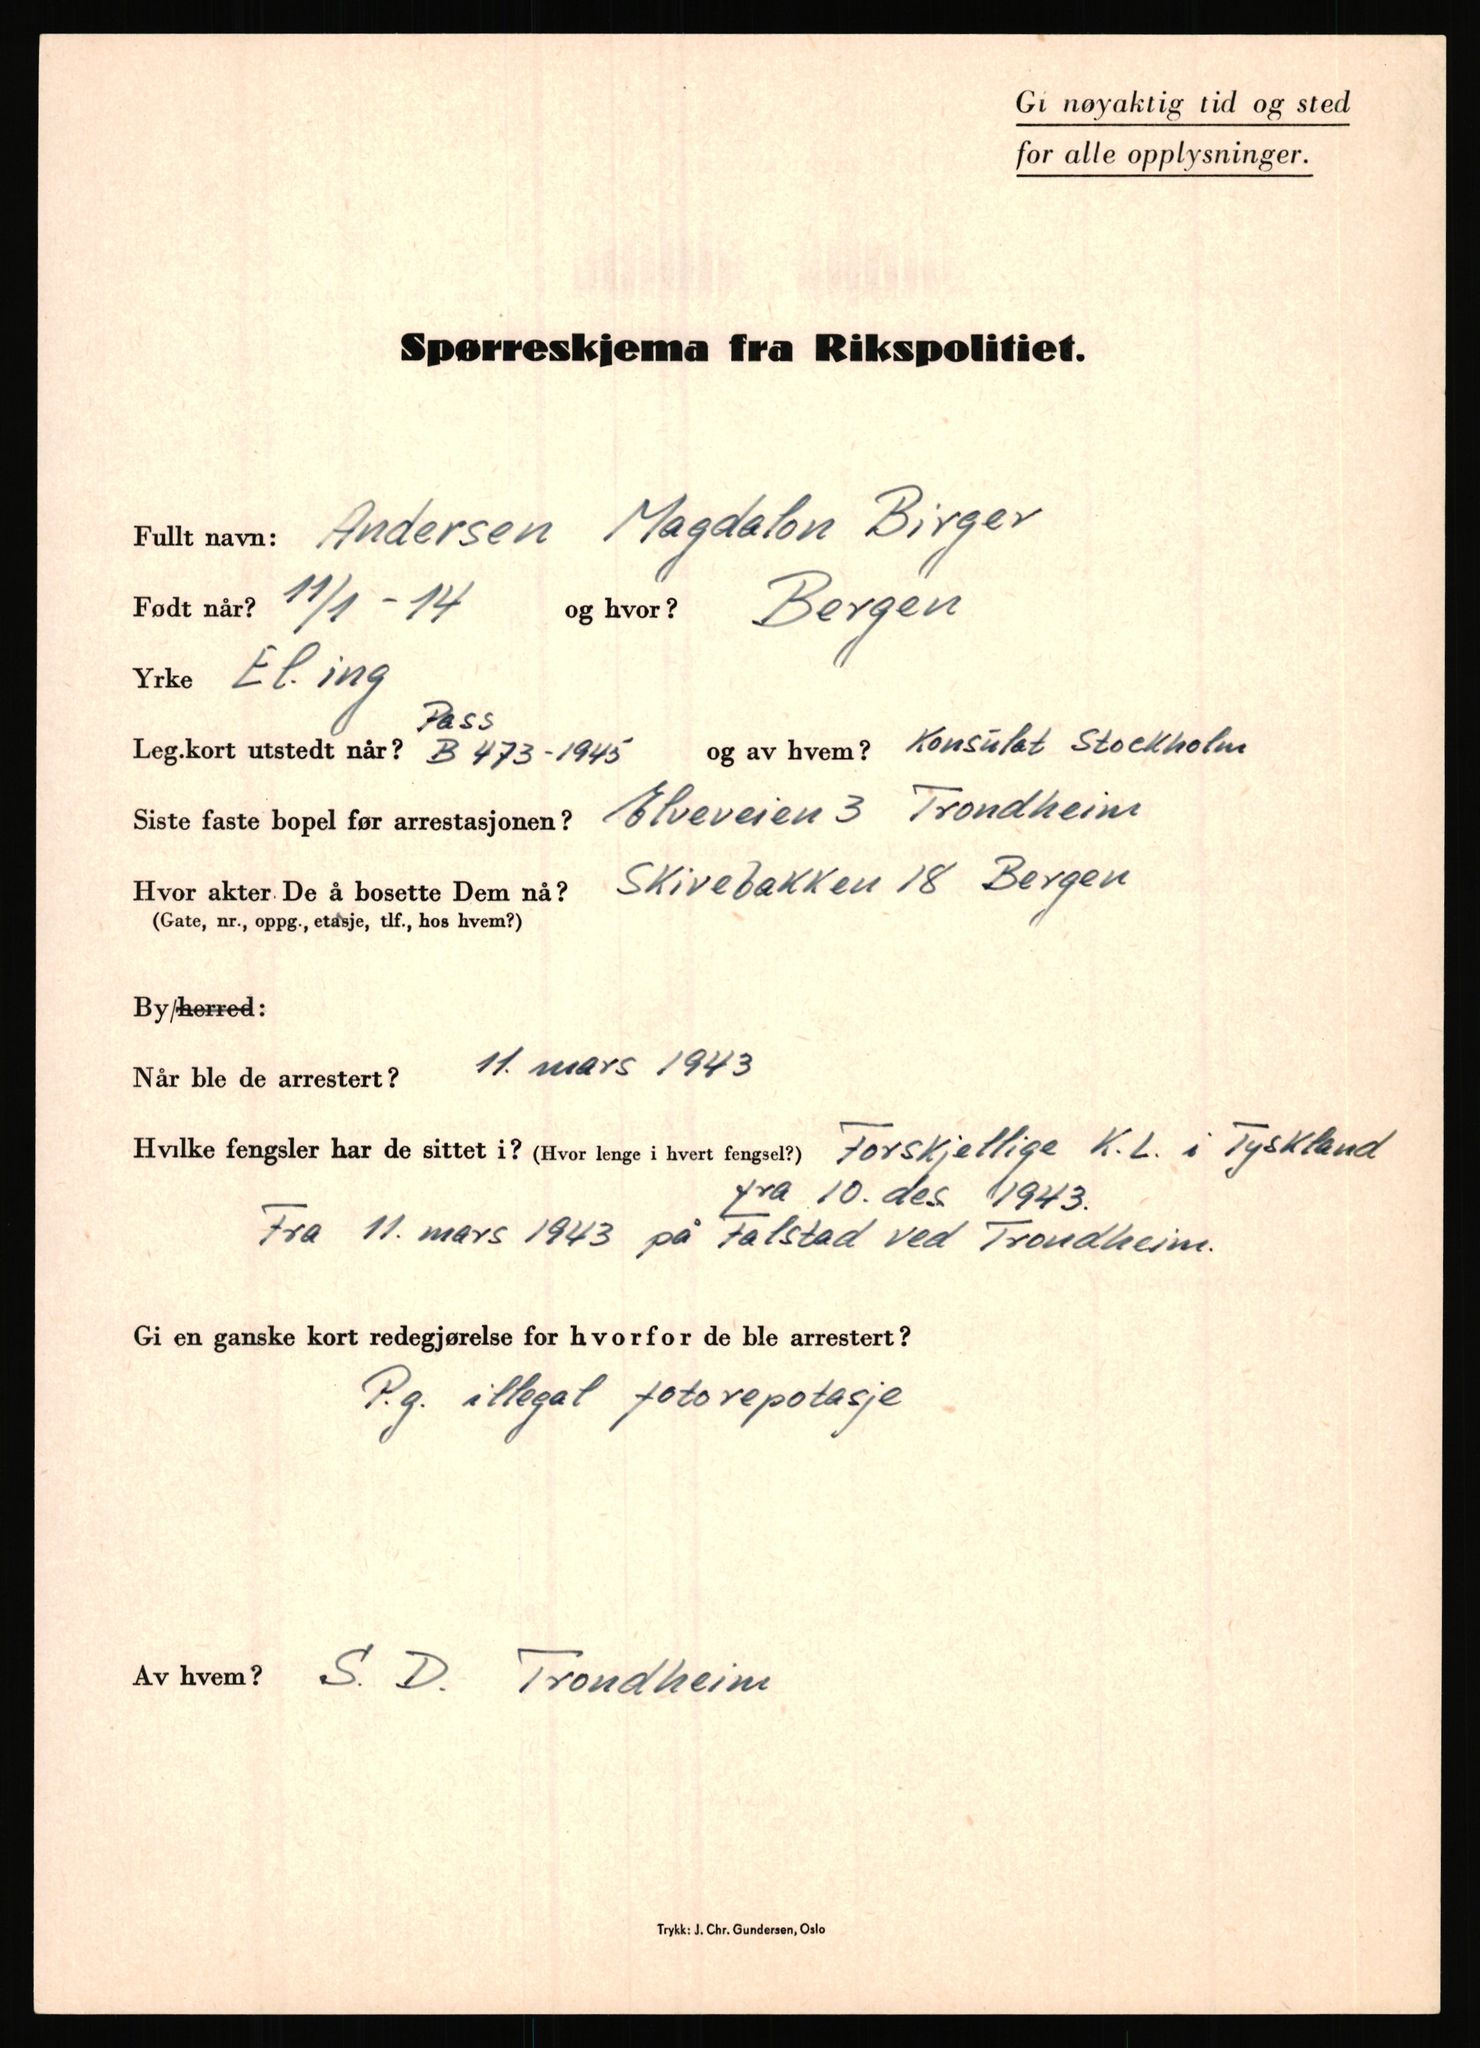 Gi nøyaktig tid og sted
for alle opplysninger.
Spørreskjema fra Rikspolitiet.
Fullt navn: Andersen Magdalon Birger
Født når? 11/1 - 14 og hvor? Bergen
Yrke El. ing
Pass
Leg.kort utstedt når? B 473-1945 og av hvem? Konsulat Stockholm
Siste faste bopel før arrestasjonen? Elveveien 3 Trondheim
Hvor akter De å bosette Dem nå? Skivebakken 18 Bergen
(Gate, nr., oppg., etasje, tlf., hos hvem?)
By/herred:
Når ble de arrestert? 11. mars 1943
Hvilke fengsler har de sittet i? (Hvor lenge i hvert fengsel?) Forskjellige K.L. i Tyskland
fra 10. des 1943.
Fra 11. mars 1943 på Falstad ved Trondheim.
Gi en ganske kort redegjørelse for hvorfor de ble arrestert?
P.g. illegal fotorepotasje
Av hvem? S. D. Trondheim
Trykk: J. Chr. Gundersen, Oslo